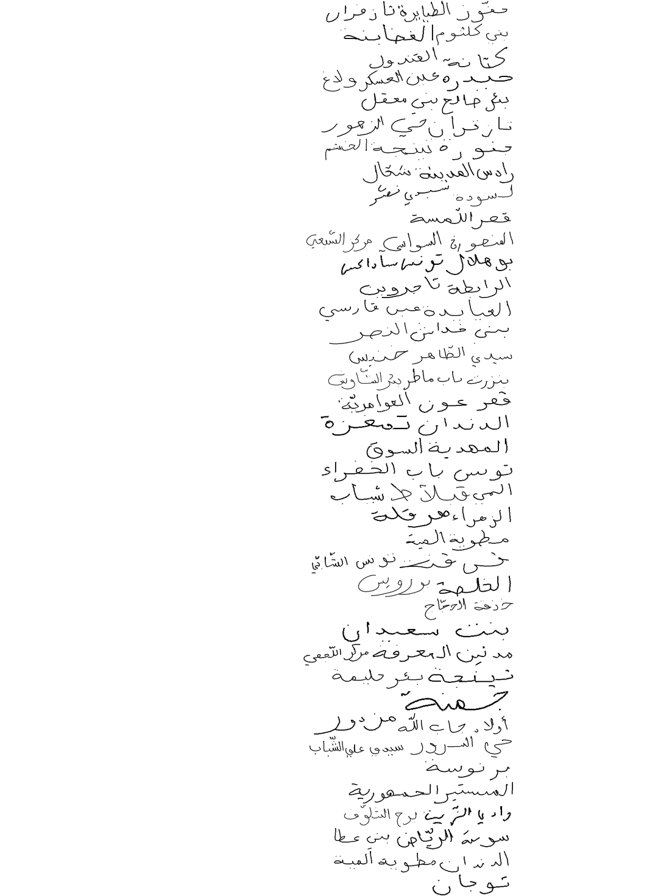 معتوق الطبايرة تازغران
بني كلثوم الغضابنة
كتانة القندول
حيدرة عين العسكر ولاغ
بئر صالح بني معقل
تازغران حي الزهور
منورة تينجة الخشم
رادس المدينة شمال
لسودة سيدي نصر
قصر اللمسة
المنصورة السواسي مركز الشعبي
بوهلال تونس
الرابطة تاجروين
العبايدة عين فارسي
بني خداش النصر
سيدي الظاهر خنيس
بنزرت باب ماطر بئر الشاوش
قصر عون العوامرية
الدندان تمغزة
المهدية السوق
تونس باب الخضراء
المي قبلاط شباب
الزهراء هرقلة
مطوية المية
تونس الشابي
القلعة بورويس
بنت سعيدان
مدنين المعرفة مركز اللقمي
تينجة بئر حليمة
جمنة
أولاد جاب الله مزدور
حي السرور سيدي علي الشباب
برنوسة
المنستير الجمهورية
وادي الزيت برج التلوف
سوسة الرياض بني عطا
الدندان مطوية المية
توجان